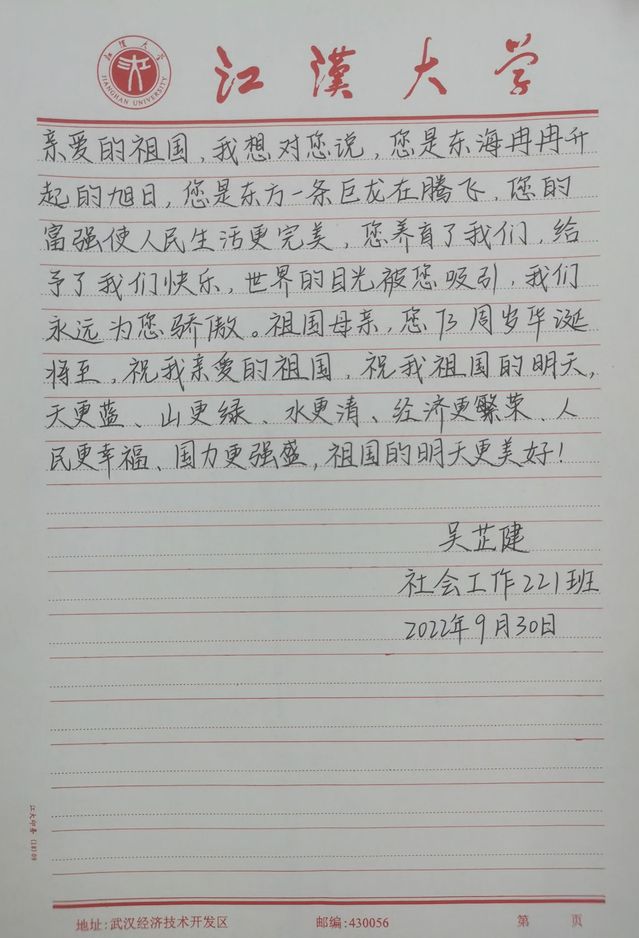 江漢大学
JIANGHAN UNIVERSITY
江漢大学
亲爱的祖国，我想对您说，您是东海冉冉升
起的旭日，您是东方一条巨龙在腾飞，您的
富强使人民生活更完美，您养育了我们，给
予了我们快乐，世界的目光被您吸引，我们
永远为您骄傲。祖国母亲，您73周岁华诞
将至，祝我亲爱的祖国，祝我祖国的明天，
天更蓝、山更绿、水更清、经济更繁荣、人
民更幸福、国力更强盛，祖国的明天更美好！
吴芷健
社会工作221班
2022年9月30日
地址:武汉经济技术开发区 邮编:430056 第 页